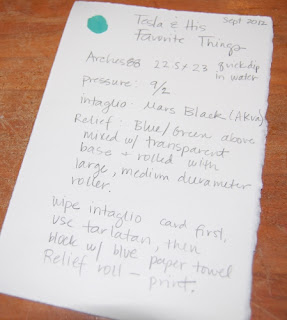 Tesla & His Sept 2012
Favorite Things
Arches 22.5 x 23 quick dip
in water
pressure: 9/2
intaglio: Mars Black (Akua)
Relief: Blue/Green above
mixed w/ transparent
base + rolled with
large, medium durameter
roller.
Wipe intaglio card first,
use tarlatan, then
block w/ blue paper towel
Relief roll – print.